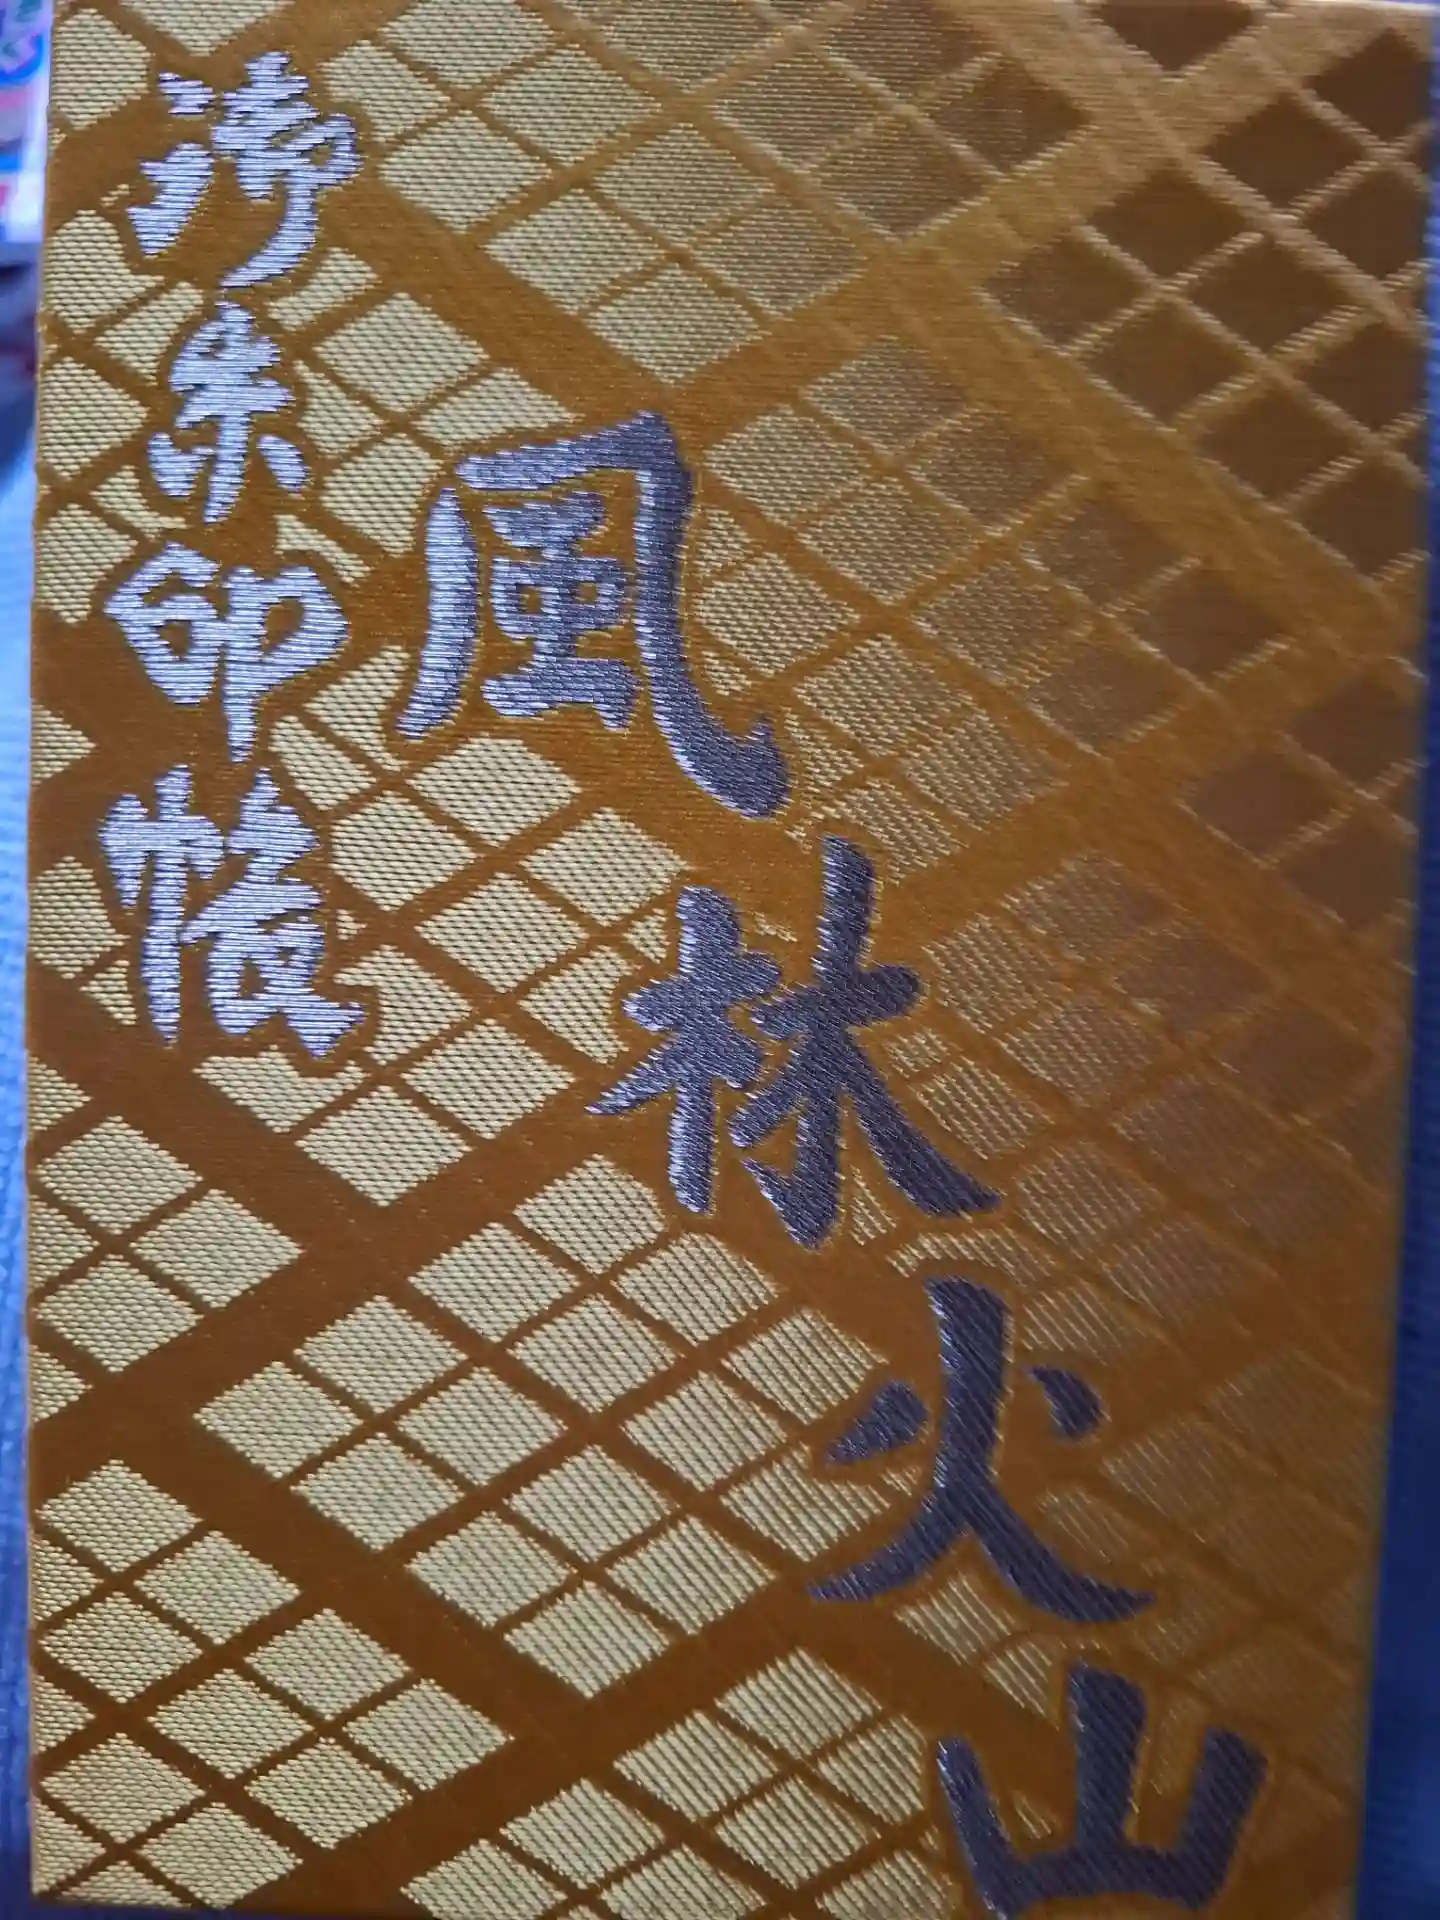 風林火山
御朱印帳